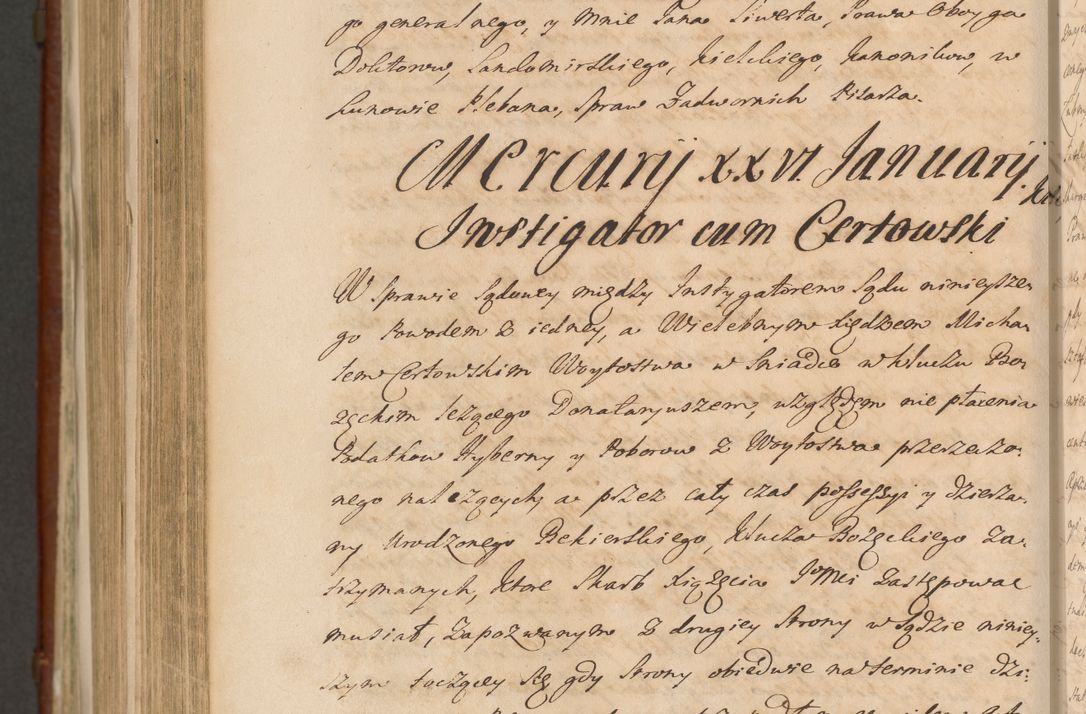 go generalnego, y mnie Jana Siwerta, Prawa Oboyga
Doktorow, Sandomirskiego, Kieleckiego, Kanonikow, w
Kunowie Plebana, Spraw Zadwornich Pisarza.
Mercurij XXVI Januarij
Instigator cum Certowski
W Sprawie Sądowey między Instygatorem Sądu ninieysze,
go Powodem z iedney, a Wielebnym Xiędzem Micha,
łem Certowskim Woytostwa w Sniadce w kluczu Bo,
zęckim leżącego Donataryuszem, względem nie płacenia
Podatkow Hyberny y Poborow z Woytostwa przerzeczo,
nego należących, a przez cały czas possessyi y dzierża,
wy Urodzonego Bekierskiego, Klucza Bożęckiego za,
trzymanych, ktore Skarb Xiążęcia Jmci zastępować
musiał, Zapozwanym z drugiey Strony w Sądzie niniey,
szym toczącey się gdy Strony obiedwie na terminie dzi,